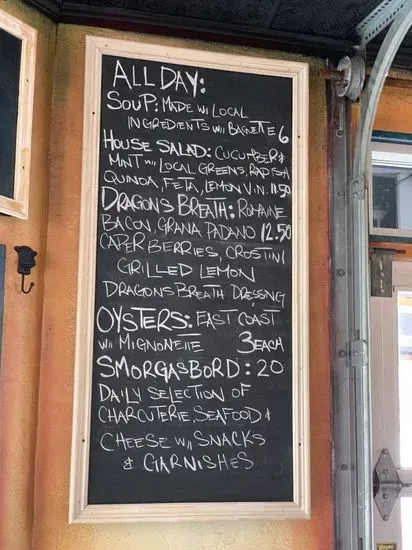 ALL DAY:
SOUP: MADE W/ LOCAL
INGREDIENTS W/ BAGUETTE 6
HOUSE SALAD: CUCUMBER &
MINT W/ LOCAL GREENS, RADISH
QUINOA, FETA, LEMON VIN. 11.50
DRAGONS BREATH: ROMAINE
BACON, GRANA PADANO 12.50
CAPER BERRIES, CROSTINI
GRILLED LEMON
DRAGONS BREATH DRESSING
OYSTERS: EAST COAST
W/ MIGNONETTE 3 EACH
SMORGASBORD: 20
DAILY SELECTION OF
CHARCUTERIE, SEAFOOD &
CHEESE W/ SNACKS
& GARNISHES